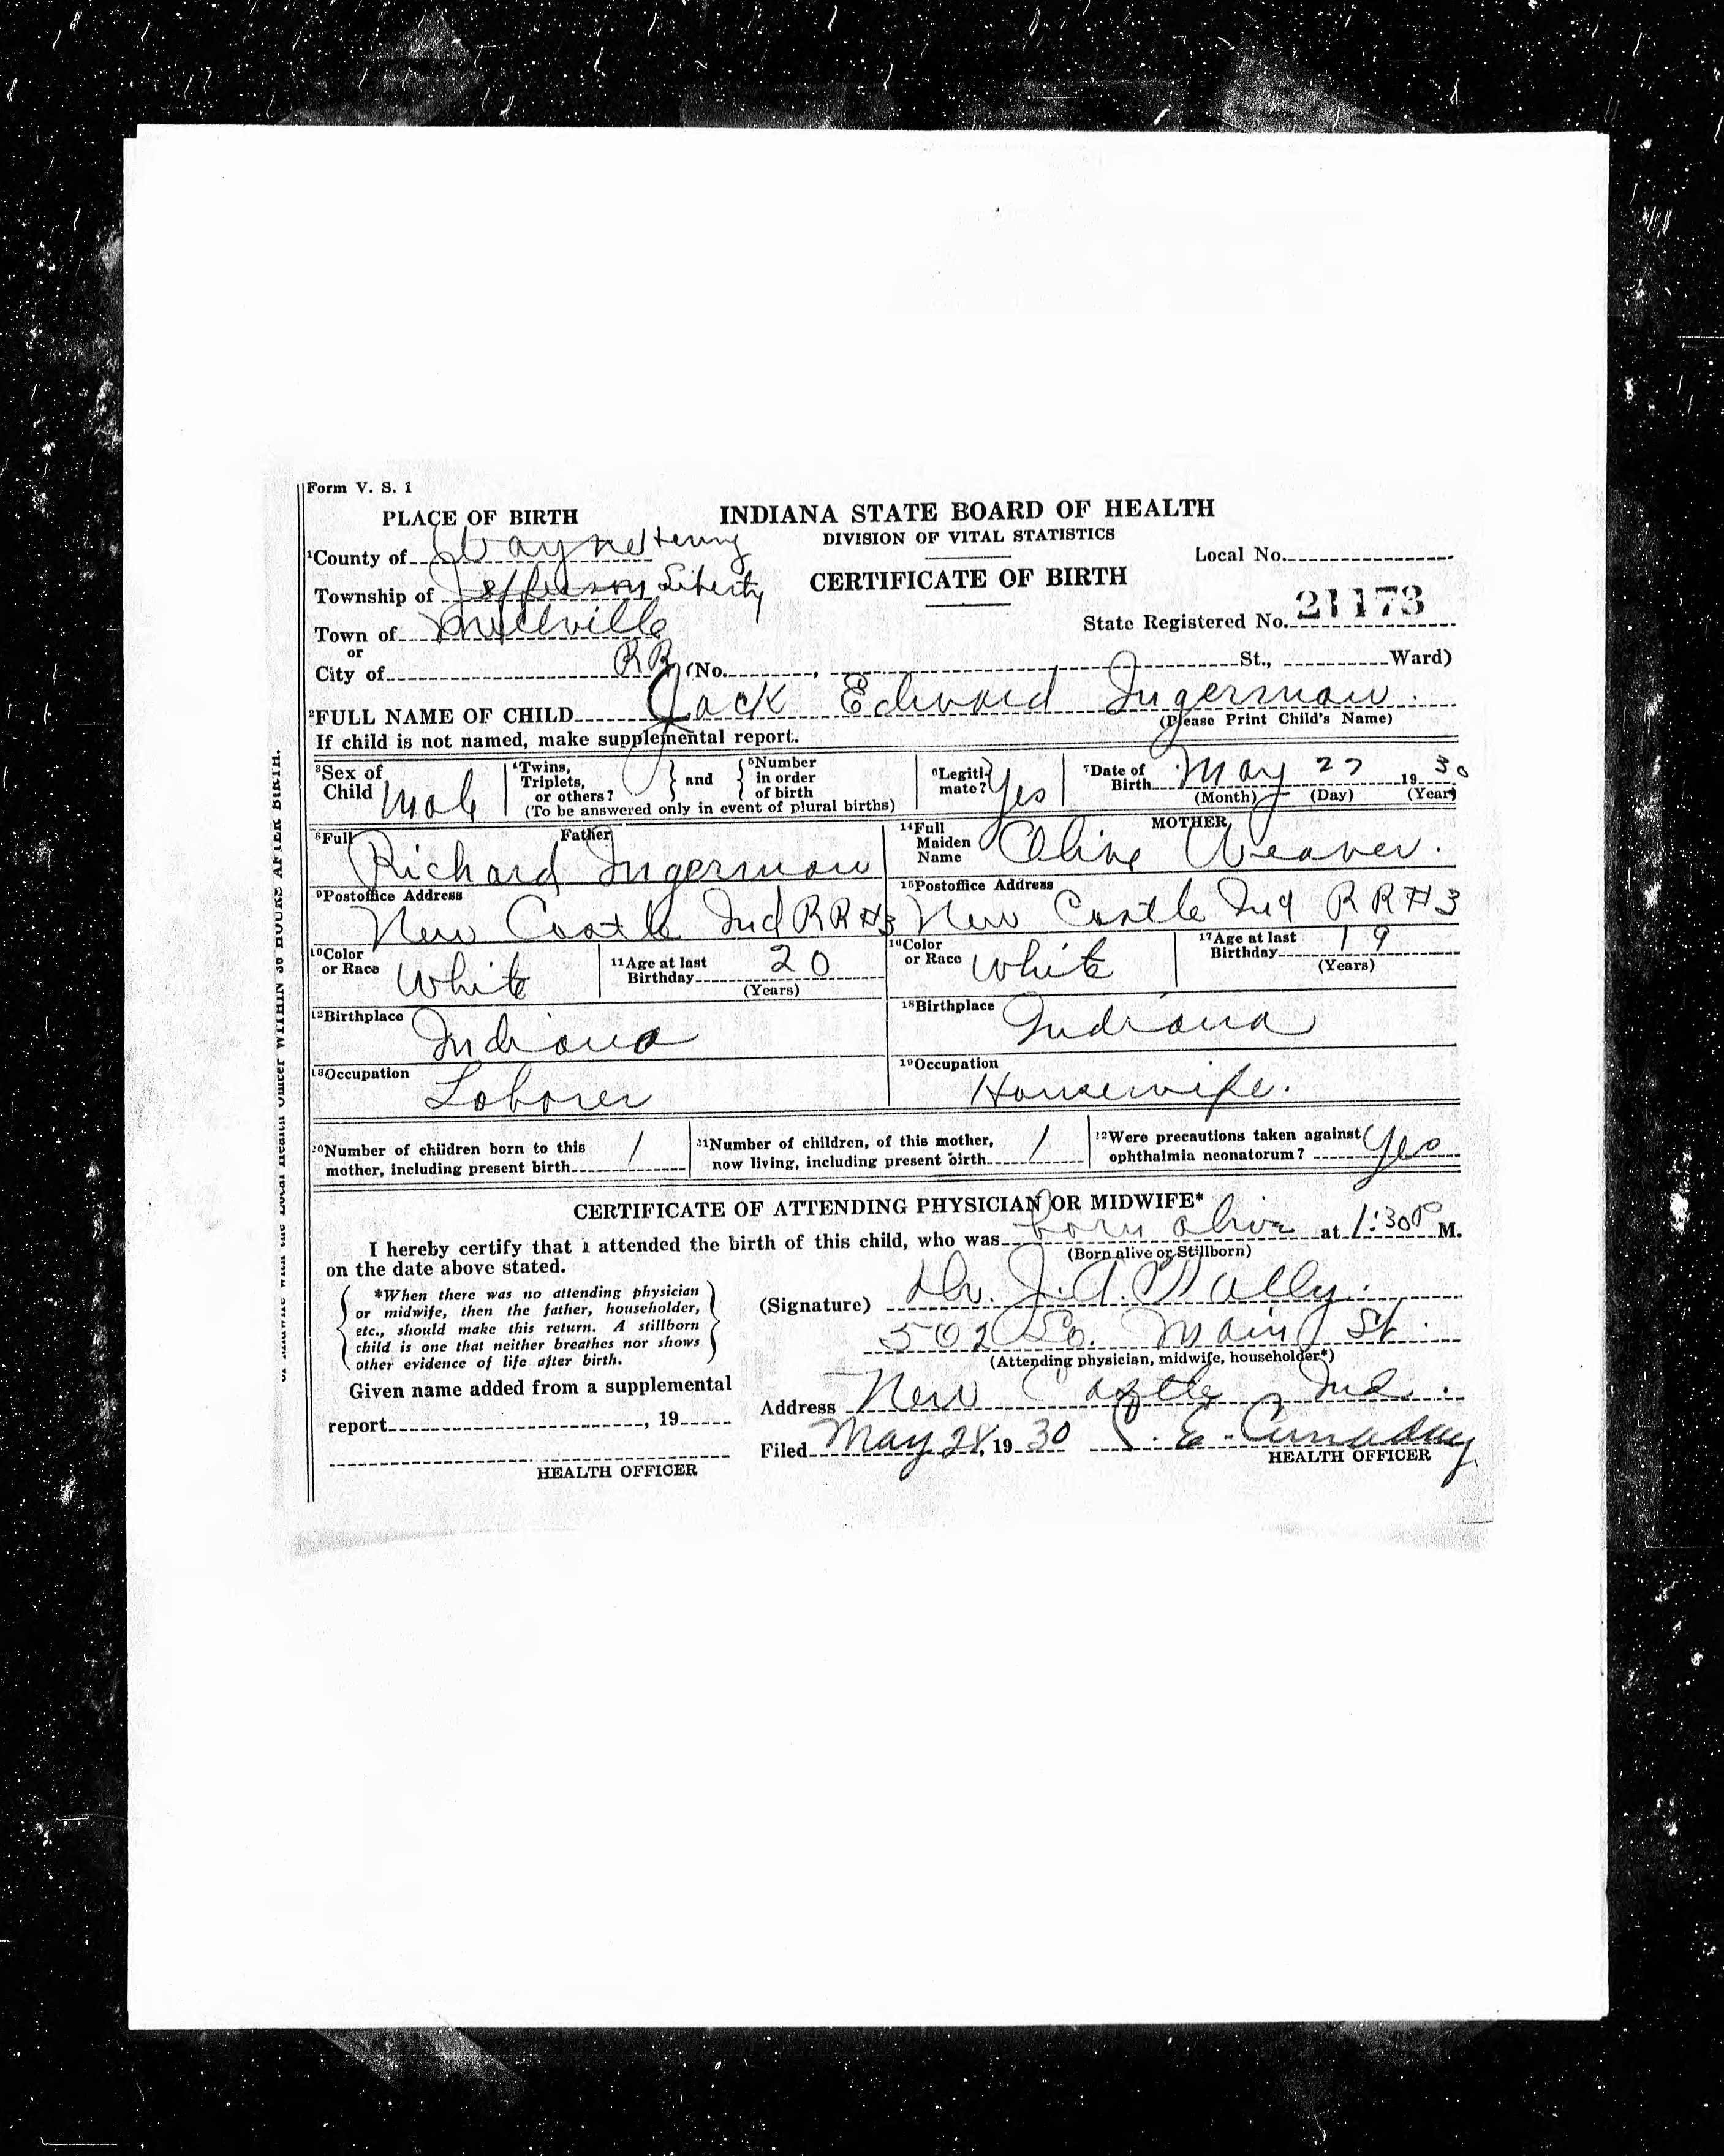 Form V. S. 1
PLACE OF BIRTH
INDIANA STATE BOARD OF HEALTH
DIVISION OF VITAL STATISTICS
¹County of Wayne Henry
Local No.
CERTIFICATE OF BIRTH
Township of Jefferson Liberty
State Registered No. 21173
Town of Millville
or
City of RR (No. , St., Ward)
²FULL NAME OF CHILD Jack Edward Ingerman.
(Please Print Child's Name)
If child is not named, make supplemental report.
³Sex of Child Male
⁴Twins, Triplets, or others? } and { ⁵Number in order of birth
(To be answered only in event of plural births)
⁶Legitimate? Yes
⁷Date of Birth May 27 1930
(Month) (Day) (Year)
⁸Full Father
Richard Ingerman
MOTHER
¹⁴Full Maiden Name Olive Weaver.
⁹Postoffice Address
New Castle Ind RR #3
¹⁵Postoffice Address
New Castle Ind RR #3
¹⁰Color or Race White
¹¹Age at last Birthday 20
(Years)
¹⁶Color or Race White
¹⁷Age at last Birthday 19
(Years)
¹²Birthplace Indiana
¹⁸Birthplace Indiana
¹³Occupation Laborer
¹⁹Occupation Housewife.
²⁰Number of children born to this mother, including present birth 1
²¹Number of children, of this mother, now living, including present birth 1
²²Were precautions taken against ophthalmia neonatorum? Yes
CERTIFICATE OF ATTENDING PHYSICIAN OR MIDWIFE*
I hereby certify that I attended the birth of this child, who was born alive at 1:30 P M.
(Born alive or Stillborn)
on the date above stated.
*When there was no attending physician
or midwife, then the father, householder,
etc., should make this return. A stillborn
child is one that neither breathes nor shows
other evidence of life after birth.
(Signature) Dr. J. A.
502 So. Main St.
(Attending physician, midwife, householder*)
Given name added from a supplemental
report , 19
HEALTH OFFICER
Address New Castle Ind.
Filed May 28, 1930 C. E. Canaday
HEALTH OFFICER
WITHIN 36 HOURS AFTER BIRTH.